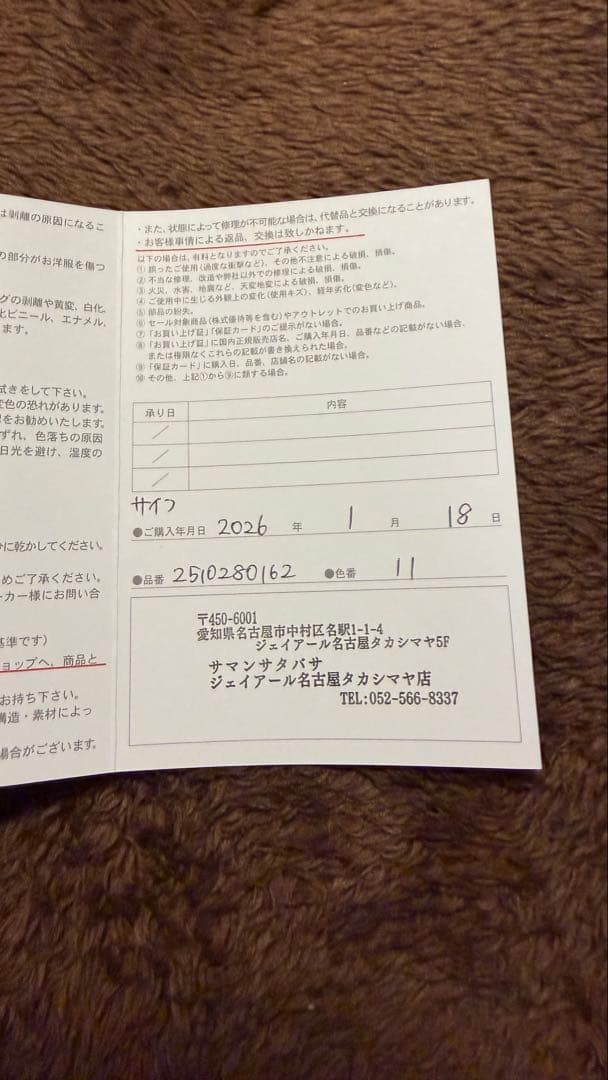 は剥離の原因になるこ
の部分がお洋服を傷つ
グの剥離や黄変、白化、
ヒビニール、エナメル、
ます。
拭きをして下さい。
変色の恐れがあります。
をお勧めいたします。
ずれ、色落ちの原因
日光を避け、湿度の
に乾かしてください。
めご了承ください。
ーカー様にお問い合
基準です)
ョップへ、商品と
お持ち下さい。
構造・素材によっ
場合がございます。
・また、状態によって修理が不可能な場合は、代替品と交換になることがあります。
・お客様事情による返品、交換は致しかねます。
以下の場合は、有料となりますのでご了承ください。
① 誤ったご使用(過度な衝撃など)、その他不注意による破損、損傷。
② 不当な修理、改造や弊社以外での修理による破損、損傷。
③ 火災、水害、地震など、天変地変による破損、損傷。
④ ご使用中に生じる外観上の変化(使用キズ)、経年劣化(変色など)。
⑤ 部品の紛失。
⑥ セール対象商品(株式優待等を含む)やアウトレットでのお買い上げ商品。
⑦ 「お買い上げ証」「保証カード」のご提示がない場合。
⑧ 「お買い上げ証」に国内正規販売店名、ご購入年月日、品番などの記載がない場合、
または権限なくこれらの記載が書き換えられた場合。
⑨ 「保証カード」に購入日、品番、店舗名の記載がない場合。
⑩ その他、上記①から⑨に類する場合。
承り日 内容
/
/
/
サイフ
●ご購入年月日 2026 年 1 月 18 日
●品番 2510280162 ●色番 11
〒450-6001
愛知県名古屋市中村区名駅1-1-4
ジェイアール名古屋タカシマヤ5F
サマンサタバサ
ジェイアール名古屋タカシマヤ店
TEL:052-566-8337